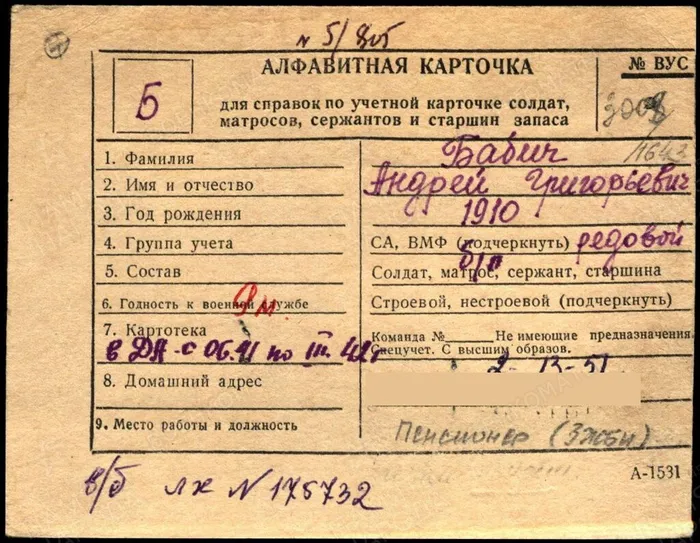 N 5/
АЛФАВИТНАЯ КАРТОЧКА
№ ВУС
Б
для справок по учетной карточке солдат,
матросов, сержантов и старшин запаса
1. Фамилия
Бабич
2. Имя и отчество
Андрей Григорьевич
3. Год рождения
1910
4. Группа учета
СА, ВМФ (подчеркнуть) редовой
5. Состав
б/п
Солдат, матрос, сержант, старшина
6. Годность к военной службе
Строевой, нестроевой (подчеркнуть)
7. Картотека
Команда № Не имеющие предназначения
Спецучет. С высшим образов.
в ДА с 06.41 по III.42г
8. Домашний адрес
2-13-51
9. Место работы и должность
Пенсионер
в/б лх N 175732
А-1531